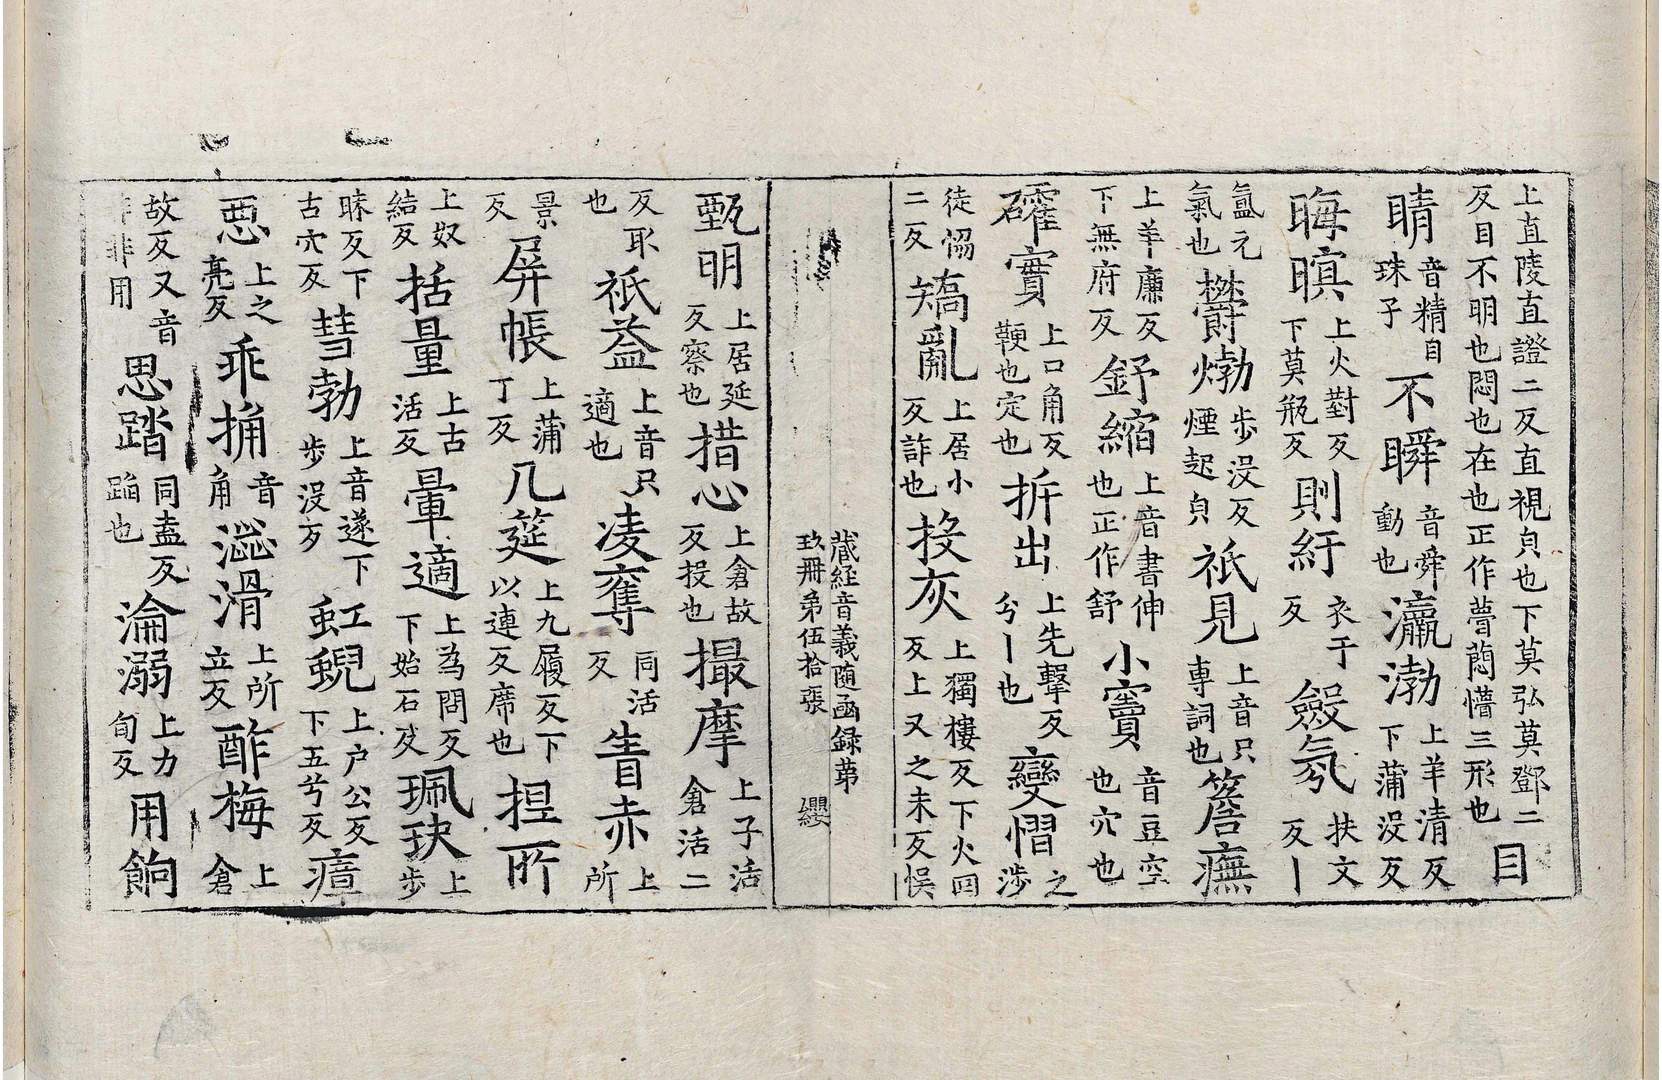 上直陵直證二反直視皃也下莫弘莫鄧二
反目不明也悶也在也正作瞢䕄懵三形也目
睛音精目珠子不瞬音舜動也瀛渤上羊清反下蒲沒反
晦暝上火對反下莫瓶反則紆衣于反㷿氛扶文反丨
氳元氣也欝㶿步沒反煙起皃祇見上音只專詞也簷廡
上羊廉反下無府反䤬縮上音書伸也正作舒小竇音豆空也穴也
礭實上口角反鞕也定也拆出上先擊反兮丨也變慴之涉
徒恊二反矯亂上居小反詐也投灰上獨樓反下火囬反上又之未反悮
藏経音義隨函録苐
玖冊苐伍拾張 纓
甄明上居延反察也措心上倉故反投也撮摩上子活倉活二
反取也祇益上音只適也凌奪同活反眚赤上所
景反屏帳上蒲丁反几筵上九履反下以連反席也揑所
上奴結反括量上古活反暈適上為問反下始石反珮玦上步
昧反下古穴反彗勃上音遂下步沒反虹蜺上户公反下五兮反瘴
惡上之亮反乖捔音角澁滑上所立反酢梅上倉
故反又音非用思踏同盍反蹋也淪溺上力旬反用餉